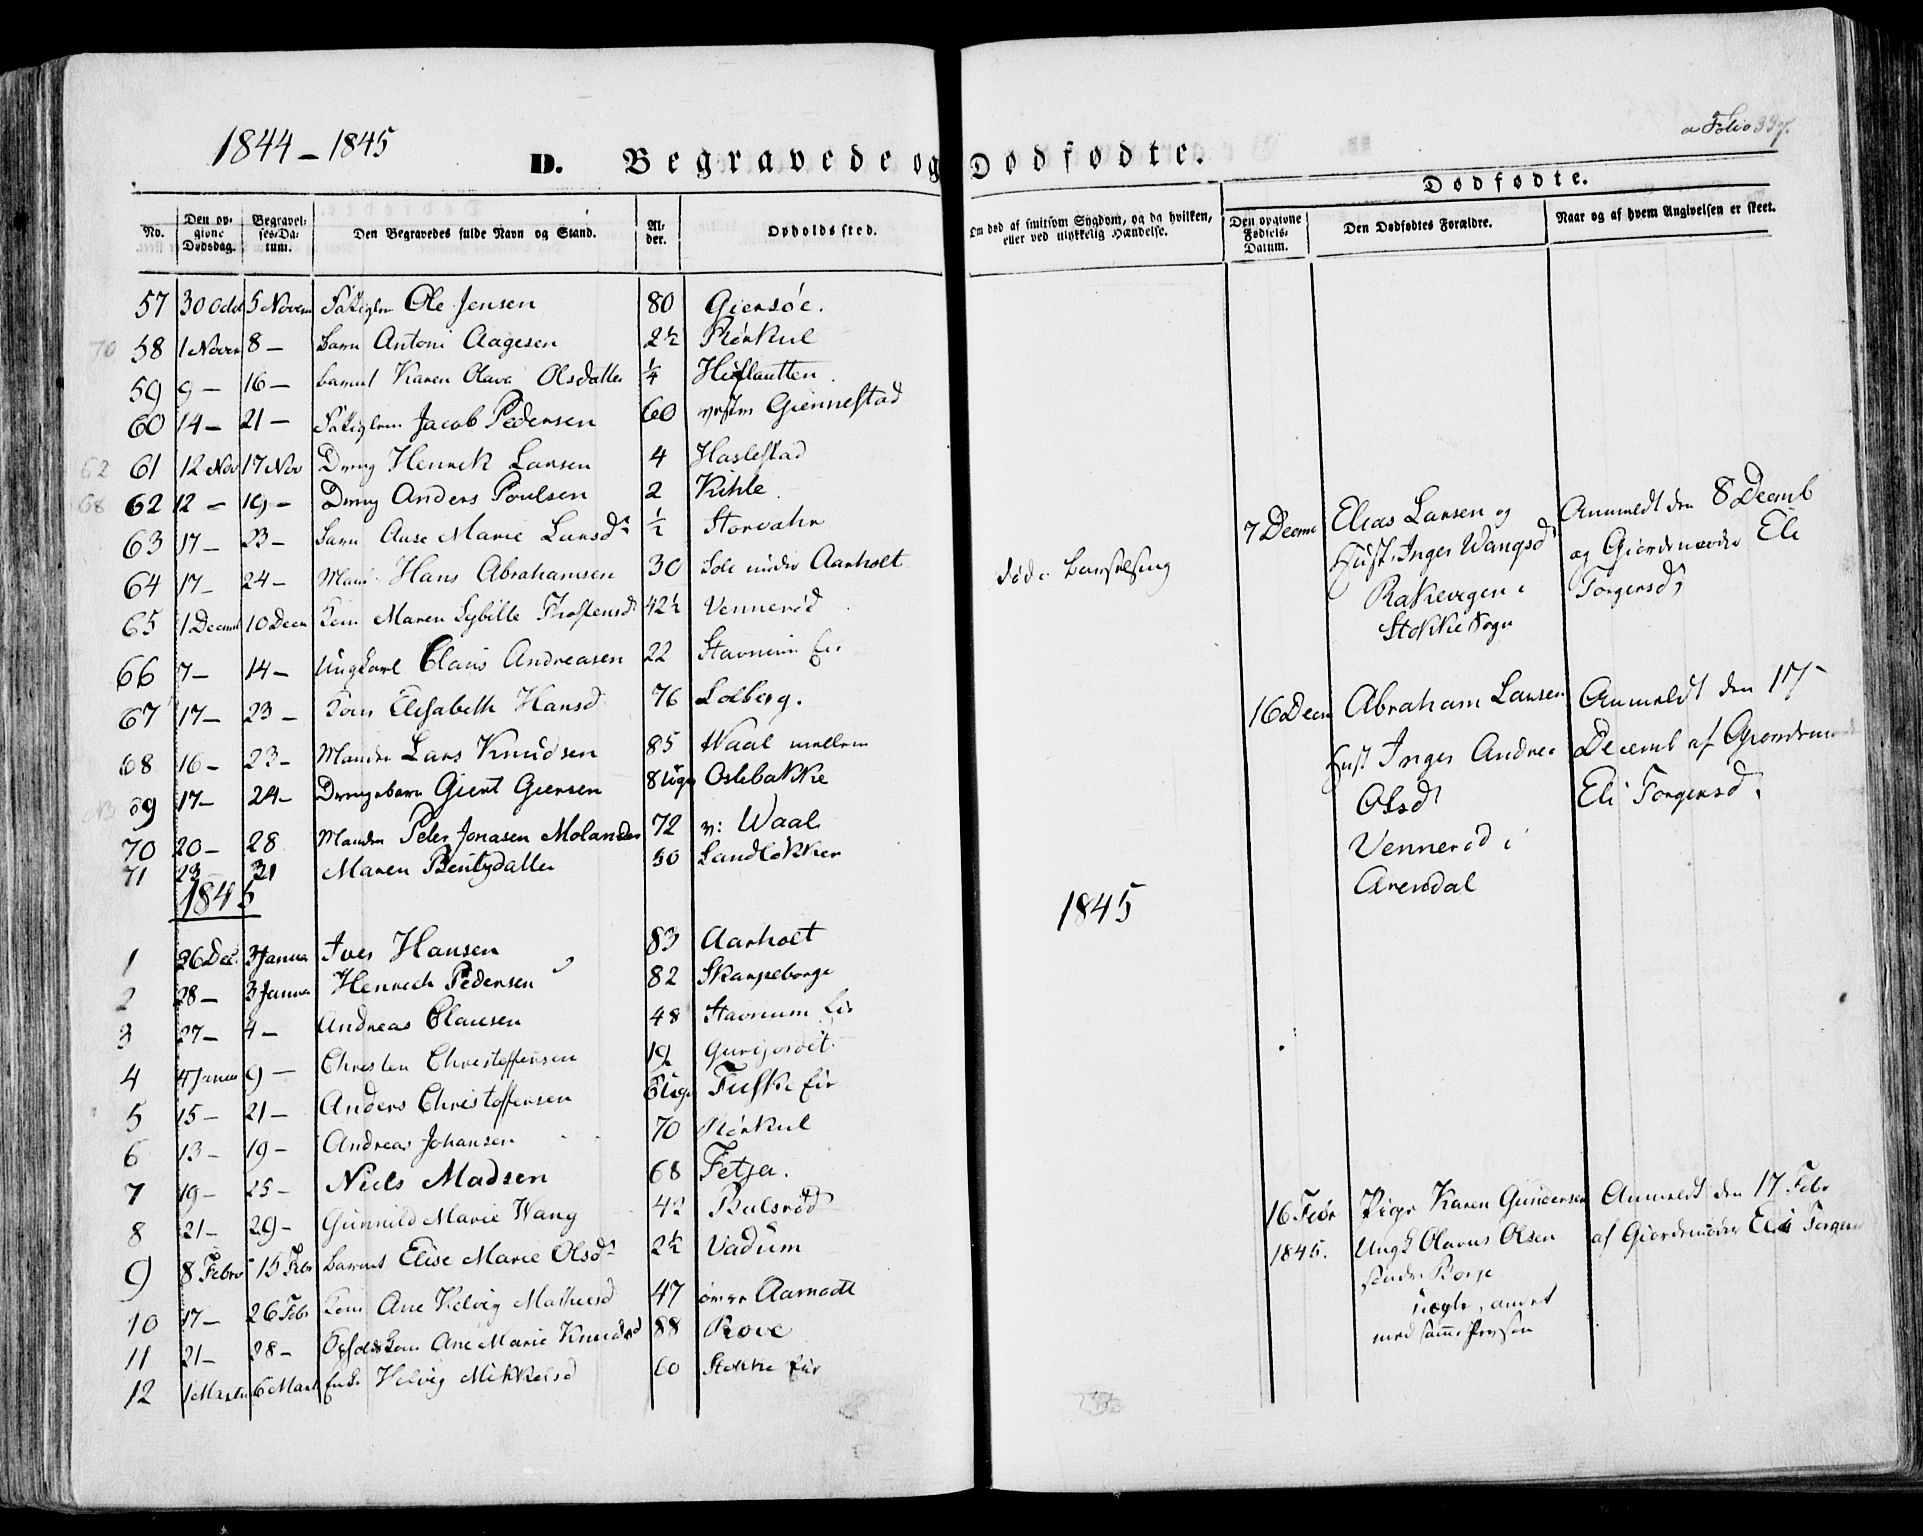 1844 - 1845
a Folio 337.
D. Begravede og Dødfødte.
Dødfødte.
No. Den opgivne Dødsdag. Begravelses-Datum. Den Begravedes fulde Navn og Stand. Alder. Opholdssted. Om død af smitsom Sygdom, og da hvilken, eller ved ulykkelig Hændelse. Den opgivne Fødsels-Datum. Den Dødfødtes Forældre. Naar og af hvem Angivelsen er skeet.
57 30 Octb 5 Novem Ole Jensen 80 Giersøe.
70 58 1 Novem 8 — Barn Antoni Aagesen 2½ Rørkul
59 9 — 16 — Barnet Karen Olava Olsdatter ¼
60 14 — 21 — Jacob Pedersen 60 Giennestad
62 61 12 Nov 17 Nov Dreng Henrik Larsen 4 Haslestad
68 62 12 — 19 — Dreng Anders Poulsen 2 Kihle
63 17 — 23 — Barn Anse Marie Larsd ½
64 17 — 24 — Mand Hans Abrahamsen 30 Sole under Aarholt
65 1 Decemb 10 Decm Kone Maren Sybille 42½ Vennerød
død i Barselseng
66 7 — 14 — Ungkarl Claus Andreasen 22
67 17 — 23 — Kone Elisabeth Hansd 76 Solberg.
68 16 — 23 — Manden Lars Knudsen 85 Waal mellem
69 17 — 24 — Drengebarn Giert Giersen 8 Uger Oslebakke
70 20 — 28 Manden Peder Jonasen Molander 72 v: Waal
71 23 31 Maren Bentsdatter 50 Sandløkken
1845
1845
1 26 Dec. 3 Janua Iver Hansen 83 Aarholt
2 28 — 3 Janua Henrich Pedersen 82 Skarpeborge
3 27 — 4 — Andreas Clausen 48 Stavnum
4 4 Janua 9 — Christen Christoffersen 19
5 15 — 21 — Anders Christoffersen 6 Uger
6 13 — 19 — Andreas Johansen 70 Rørkul
7 19 — 25 — Niels Madsen 68 Fetja.
8 21 — 29 — Gunnild Marie Wang 42 Bulsrød
9 8 Febru 15 Febr Barnet Elise Marie Olsd 2½ Vadum
10 17 — 26 Febr Kone Ane Helvig Mathesd 47 Aarnodt
11 21 — 28 — Kone Ane Marie Knudsd 88 Rove
12 1 Marts 6 Mart Enke Helvig Mikkelsd 60 Stokke
7 Decm Elias Larsen og Anmeldt den 8 Decemb
Hust. Inger Wangsd og Giordemoder Eli
Rakevigen i Torgersd
Stokke Sogn
16 Decm Abraham Larsen Anmeldt den 17
Hust Inger Andrea Decemb af Giordemoder
Olsd Eli Torgersd.
Vennerød i
Arendal
16 Febr Pige Karen Gundersen Anmeldt den 17 Febr
1845. Ungk Olavus Olsen af Giordemoder Eli Torgersd
søndre Borge
uægte, andet
med samme Person